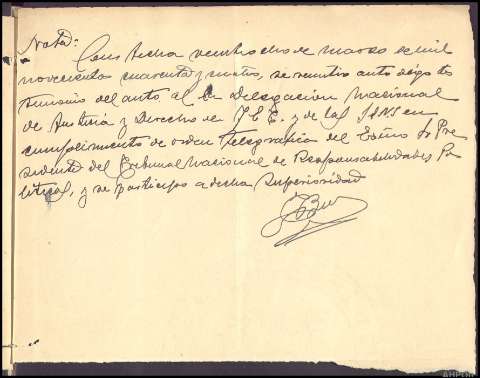 Nota:
Con fecha veintiocho de marzo de mil
novecientos cuarenta y cuatro, se remitio auto digo tes
timonio del auto al de Delegacion Nacional
de Justicia y Derecho de F.E.E. y de las JONS en
cumplimiento de orden telegrafica del Excmo Sr Pre
sidente del Tribunal Nacional de Responsabilidades Po
liticas, y se participo a dicha Superioridad